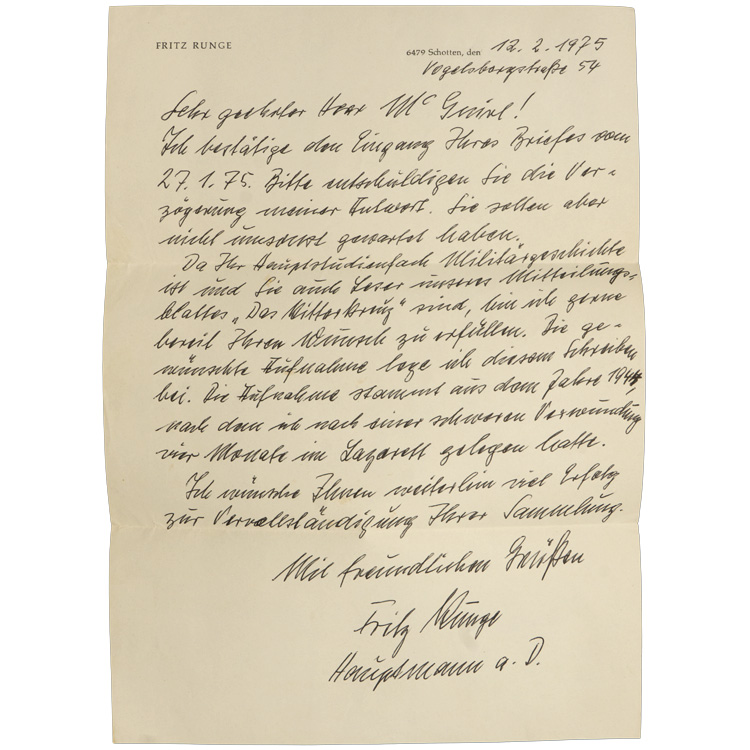 FRITZ RUNGE
6479 Schotten, den 12. 2. 1975
Vogelsbergstraße 54
Sehr geehrter Herr Mc Guirl!
Ich bestätige den Eingang Ihres Briefes vom
27. 1. 75. Bitte entschuldigen Sie die Ver-
zögerung meiner Antwort. Sie sollen aber
nicht umsonst gewartet haben.
Da Ihr Hauptstudienfach Militärgeschichte
ist und Sie auch Leser unseres Mitteilungs-
blattes „Das Ritterkreuz" sind, bin ich gerne
bereit Ihren Wunsch zu erfüllen. Die ge-
wünschte Aufnahme lege ich diesem Schreiben
bei. Die Aufnahme stammt aus dem Jahre 1944,
nach dem ich nach einer schweren Verwundung
vier Monate im Lazarett gelegen hatte.
Ich wünsche Ihnen weiterhin viel Erfolg
zur Vervollständigung Ihrer Sammlung.
Mit freundlichen Grüßen
Fritz Runge
Hauptmann a. D.